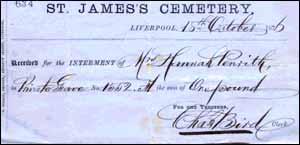 634
ST. JAMES'S CEMETERY,
LIVERPOOL, 15th October
Received for the INTERMENT of Mrs Hannah Penrith
Private Grave No. 1662 the sum of One pound
FOR THE TRUSTEES,
Chas Bird Clerk